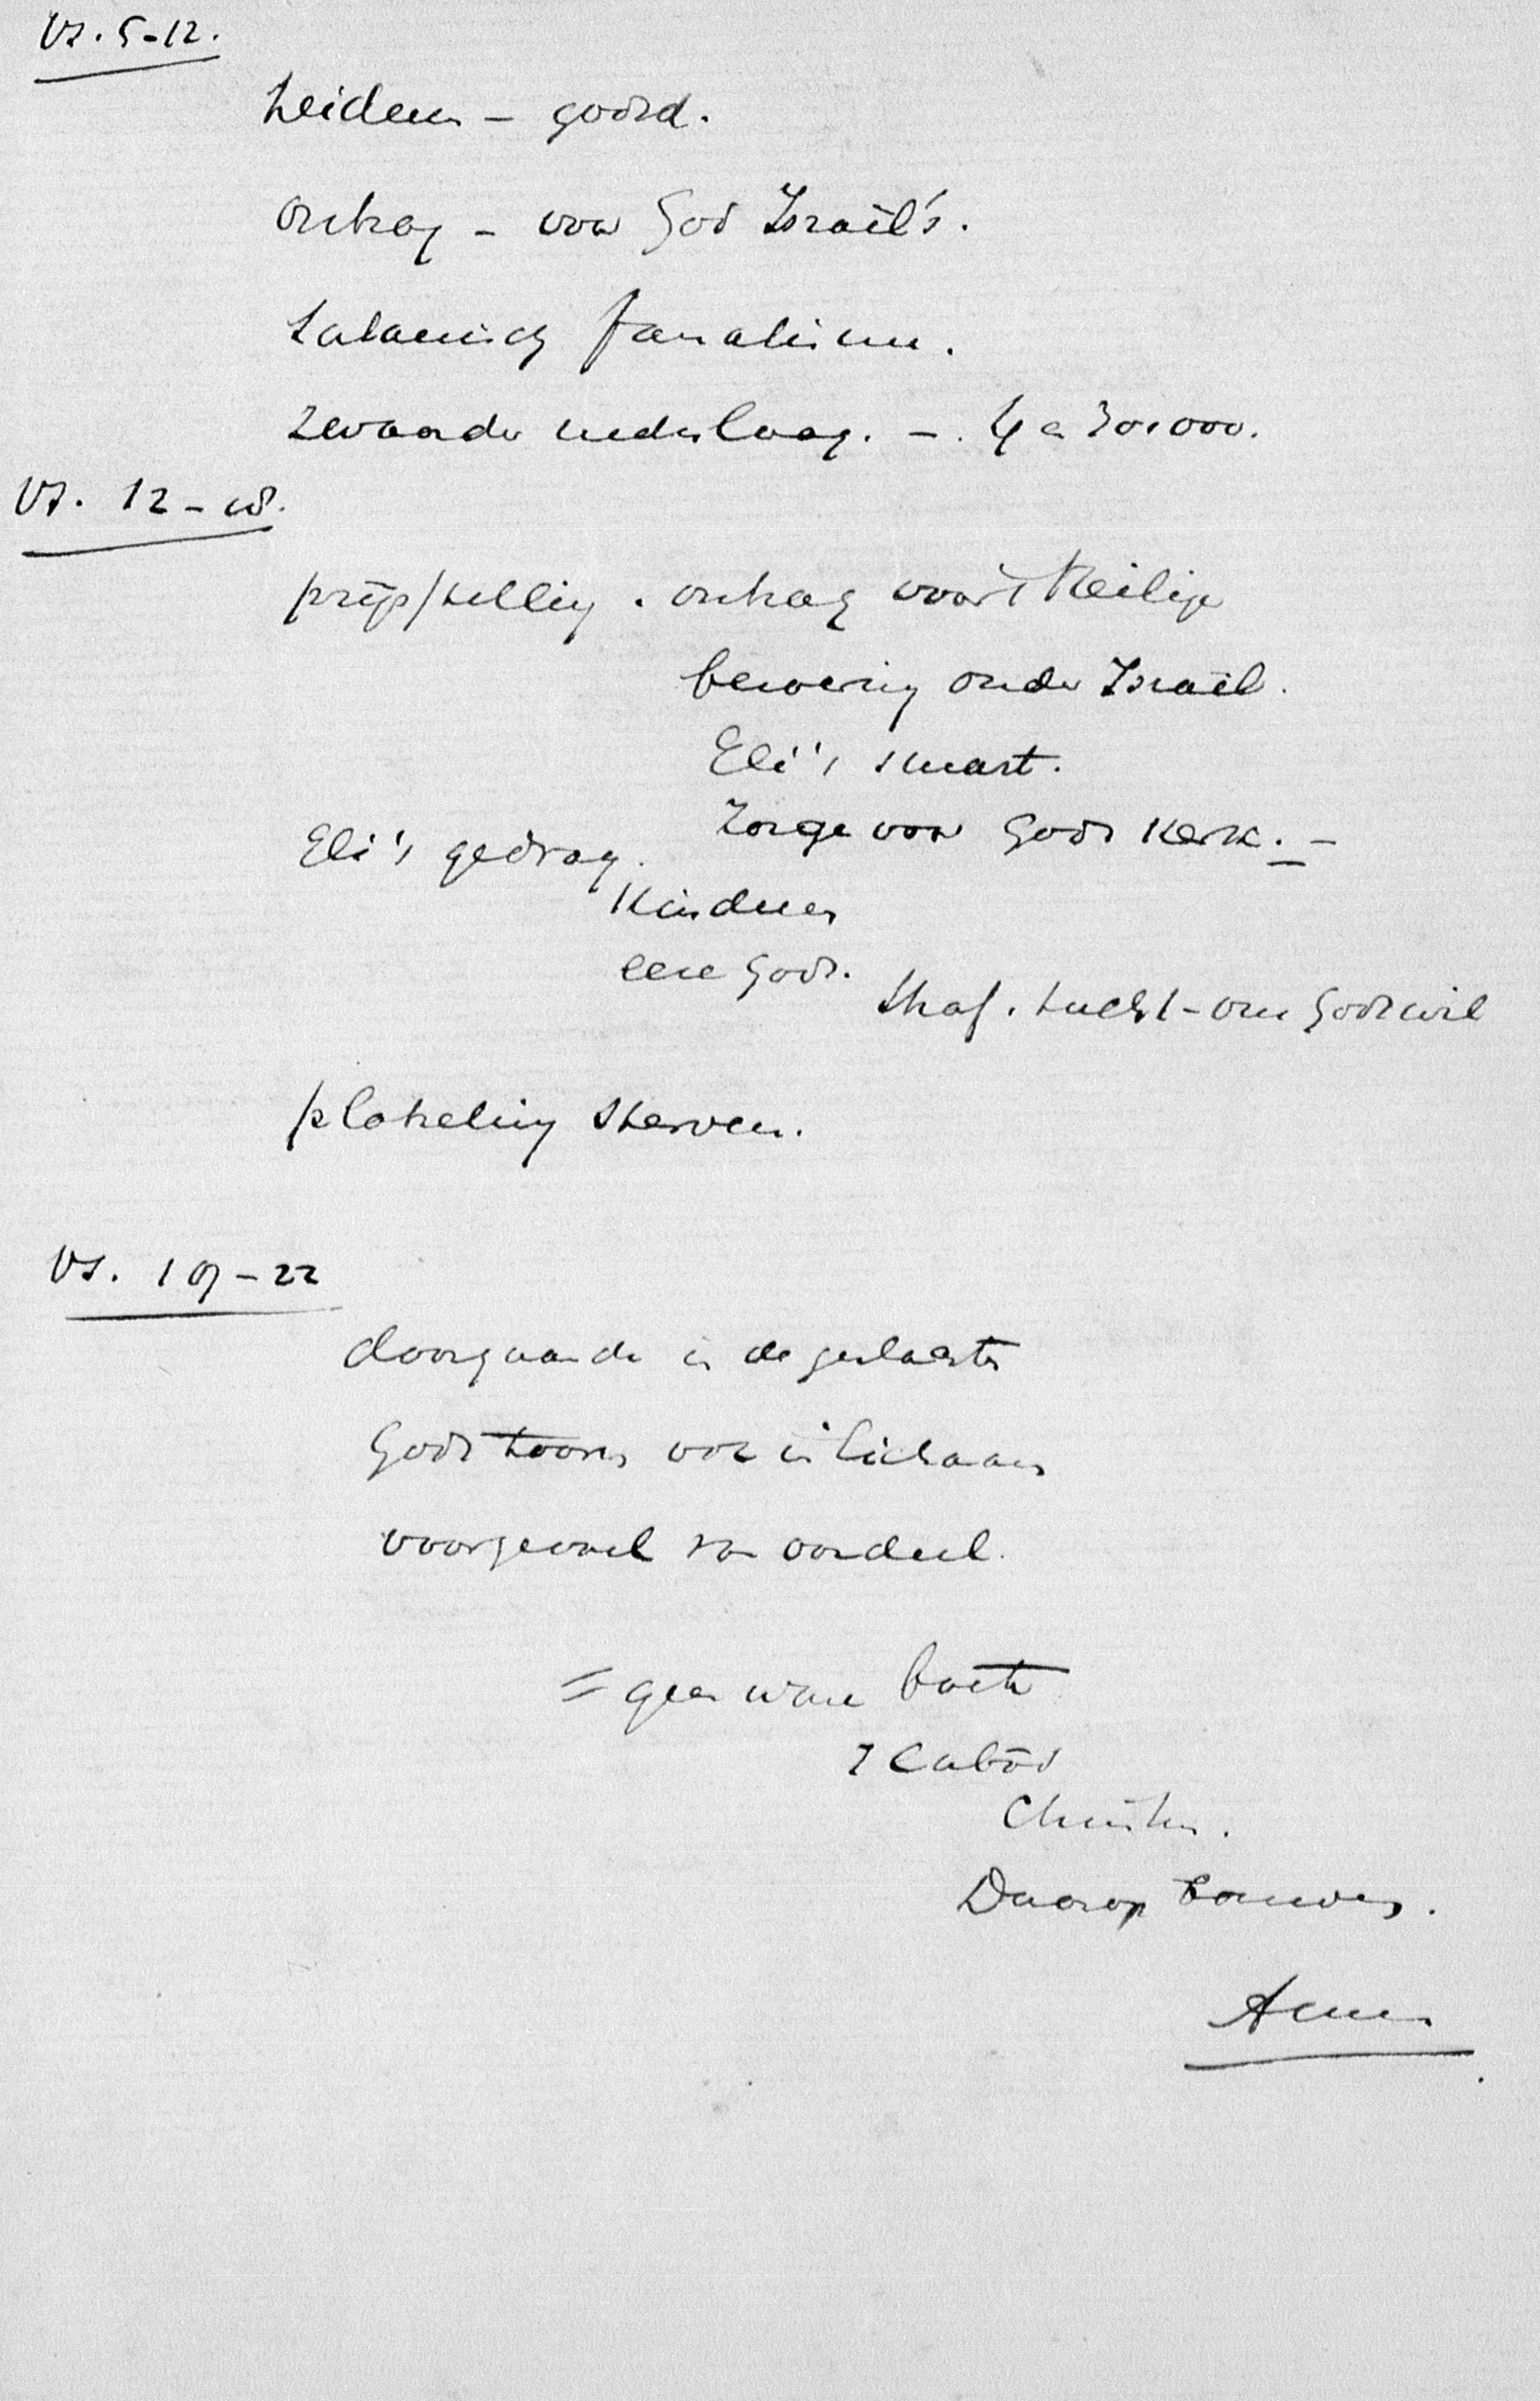 Vs. 5-12.
heidenen - godsd.
ontzag - voor God Israël's.
satanisch fanatisme.
zwaarder nederlaag. - . 4 a 30.000.
Vs. 12-18.
prijsstelling . ontzag voor 't Heilige
beroering onder Israël.
Eli's smart.
Zorge voor Gods Kerk. -
Eli's gedrag.
Kinderen
eere Gods.
straf. tucht - om Gods wil
plotseling sterven.
Vs. 19-22
doorgaande in de geslachten
Gods toorn ook in lichaam
voorgevoel van oordeel.
= geen ware boete
Icabôd
Christen.
Daarop bouwen.
Amen